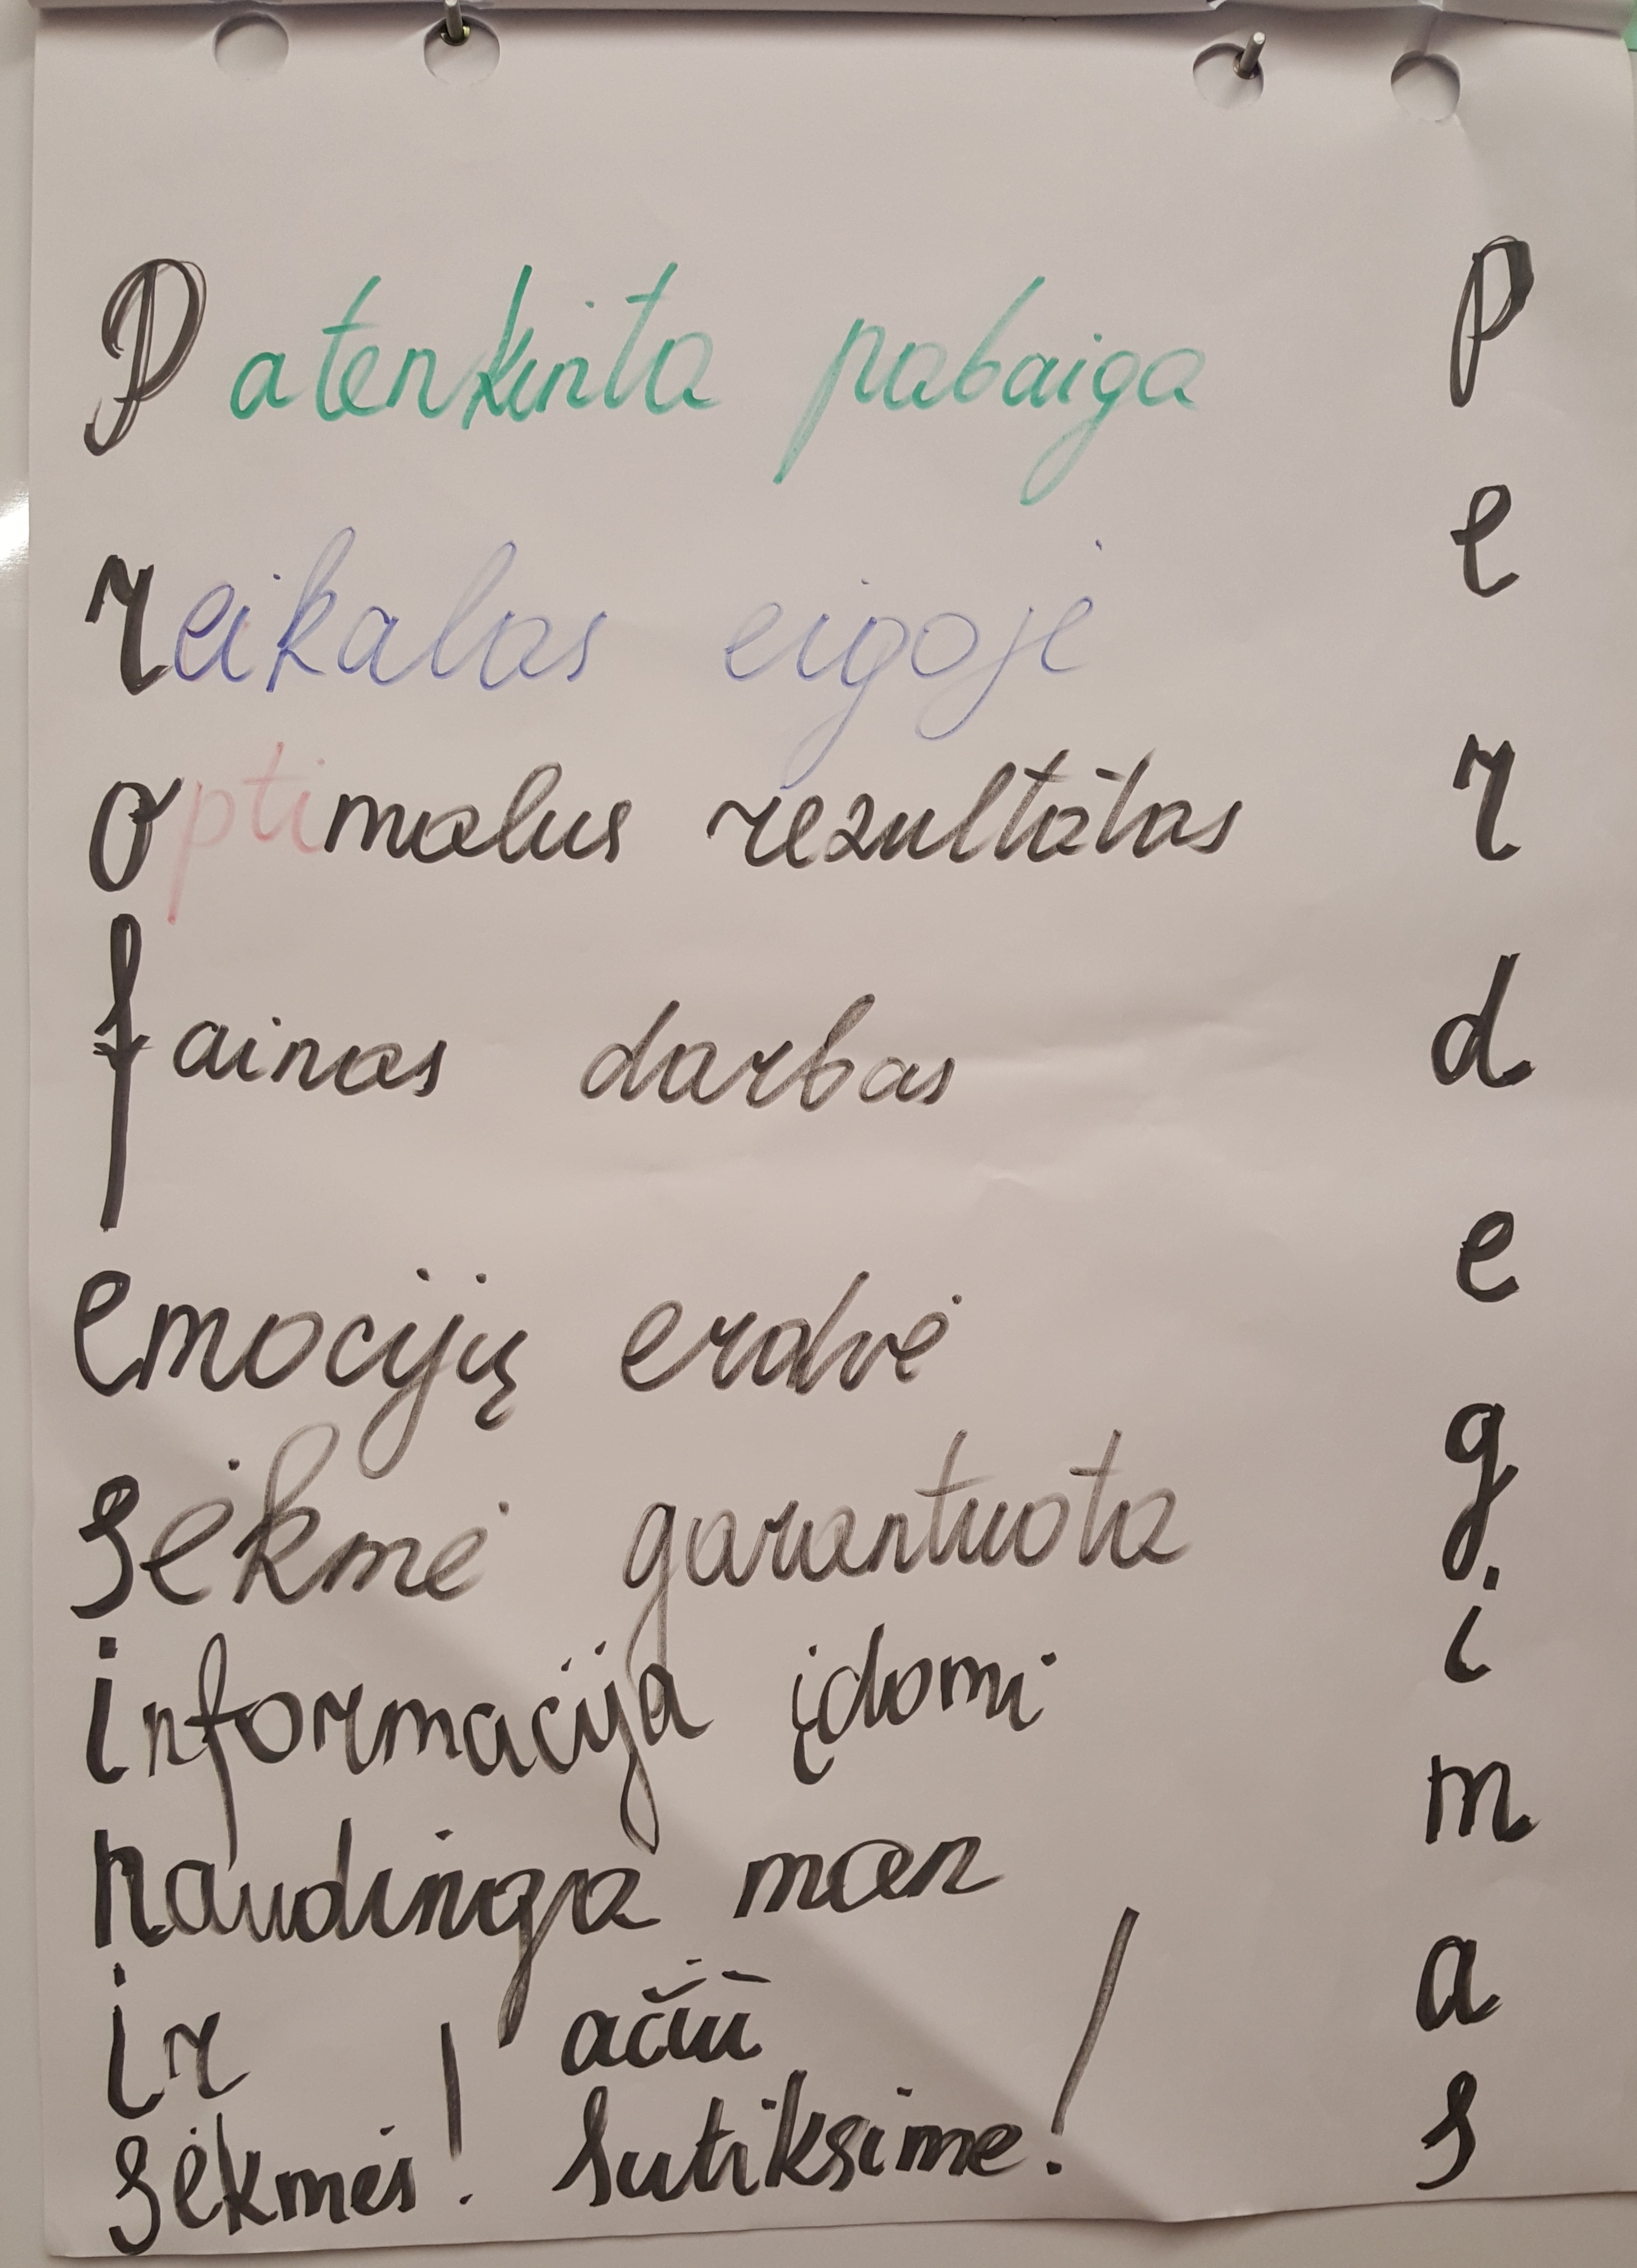 Patenkinta pabaiga
reikalas eigoje
optimalus rezultatas
fainas darbas
emocijų erdvė
sėkmė garantuota
informacija įdomi
naudinga man
ir ačiū
sėkmės! Sutiksime!
P
e
r
d
e
g
i
m
a
s